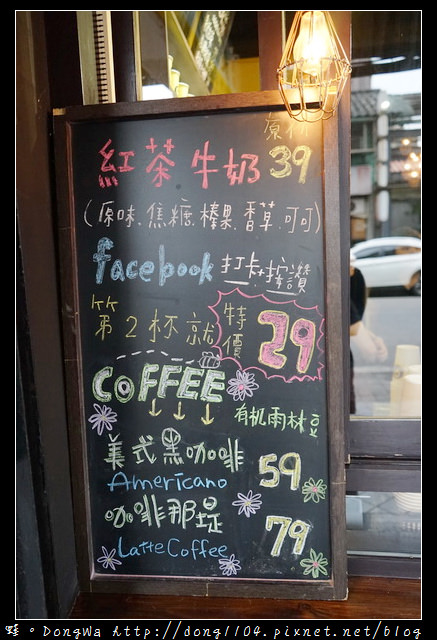 原杯
紅茶牛奶 39
(原味.焦糖.榛果.香草.可可)
facebook 打卡+按讚
第2杯就 特價 29
COFFEE
有机雨林豆
美式黑咖啡
Americano 59
咖啡那堤
Latte Coffee 79
DongWa http://dong1104.pixnet.net/blog